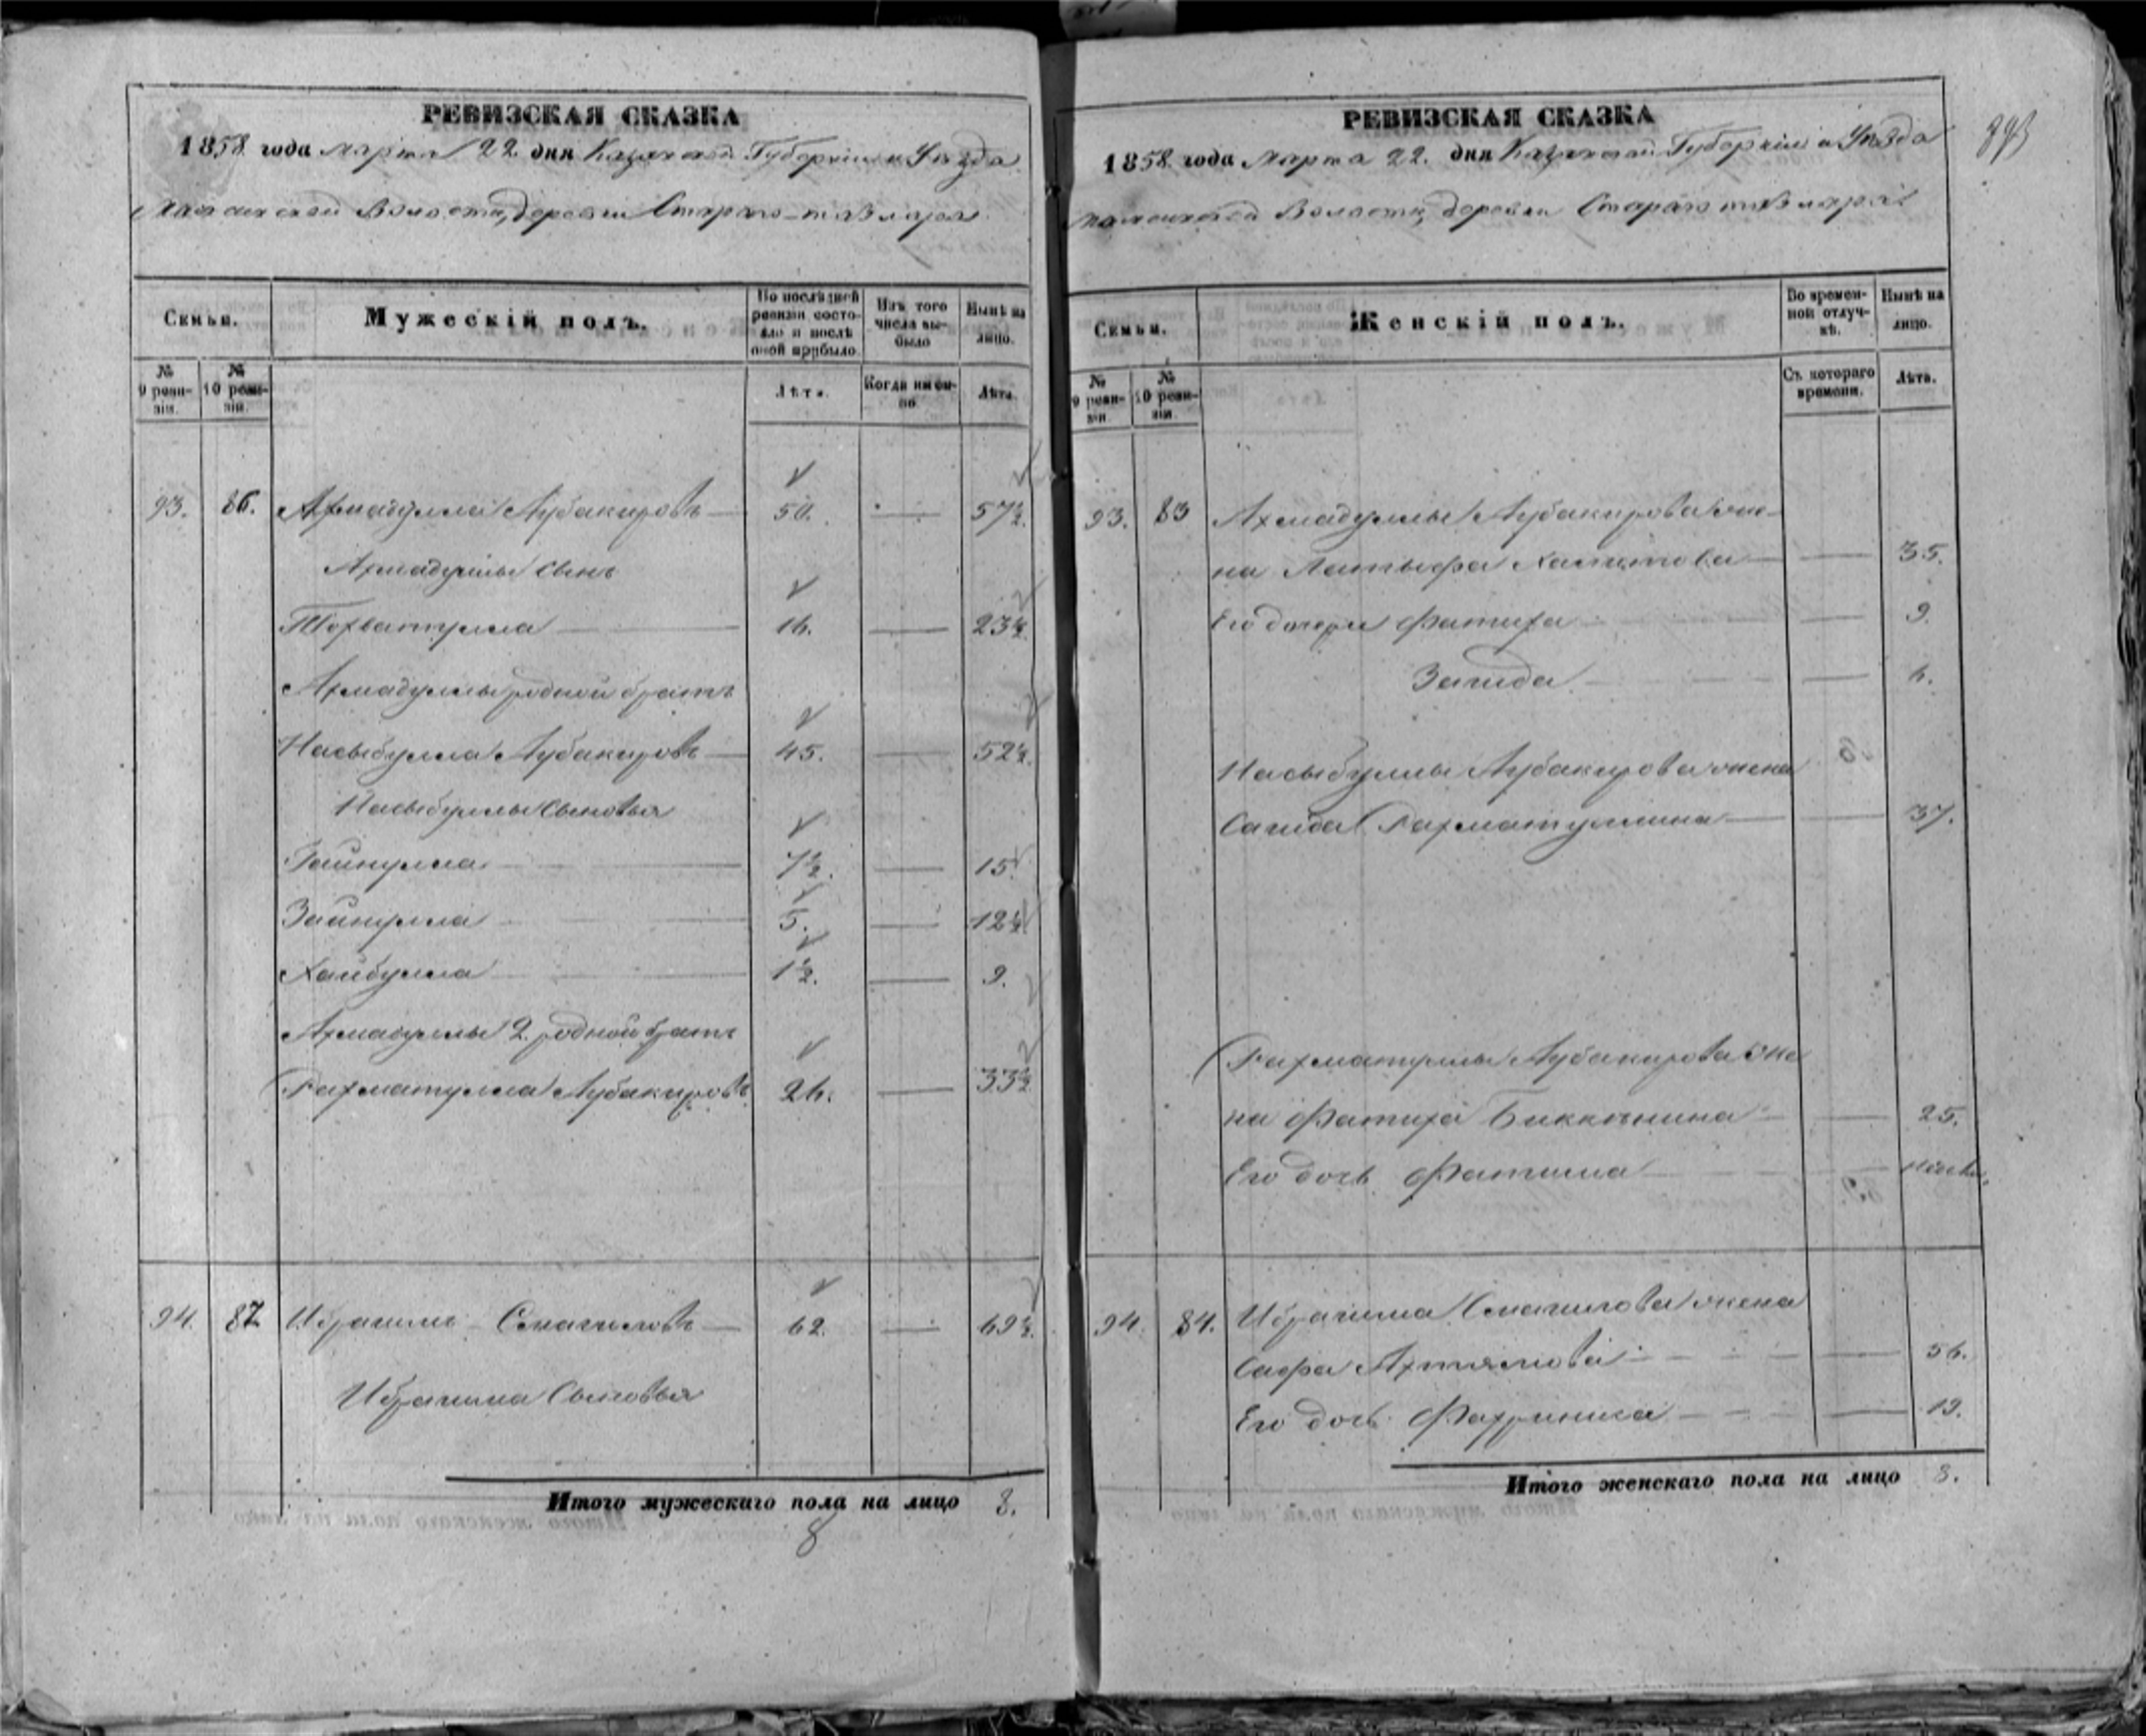 РЕВИЗСКАЯ СКАЗКА
1858 года марта 22 дня Казанской Губернии и Уѣзда
волости, деревни Стараго
Семьи.
Мужескій полъ.
По послѣдней ревизіи состояло и послѣ оной прибыло.
Изъ того числа выбыло
Нынѣ на лицо.
№ 9 ревизіи.
№ 10 ревизіи.
Лѣта.
Когда именно.
Лѣта.
93. 86. Ахмадулла Аубакировъ 50. — 57½
Ахмадуллы сынъ
Тохватулла 16. — 23½
Ахмадуллы родной братъ
Насыбулла Аубакировъ 45. — 52½.
Насыбуллы сыновья
Гайнулла 7½. — 15.
Зайнулла 5. — 12½
Хайбулла 1½. — 9.
Ахмадуллы 2. родной братъ
Рахматулла Аубакировъ 26. — 33½
94. 87 Ибрагимъ Смагиловъ 62. — 69½.
Ибрагима сыновья
Итого мужескаго пола на лицо 8.
8
РЕВИЗСКАЯ СКАЗКА
1858 года Марта 22. дня Казанской Губерніи и Уѣзда
Волости, деревни Стараго
Семьи.
Женскій полъ.
Во временной отлучкѣ.
Нынѣ на лицо.
№ 9 ревизіи
№ 10 ревизіи
Съ котораго времени.
Лѣта.
93. 83 Ахмадуллы Аубакирова же-
на Латыфа Хамитова — 35.
Его дочери Фатиха — 9.
Загида — 6.
Насыбуллы Аубакирова жена
Сагида Рахматуллина — 37.
Рахматуллы Аубакирова же
на Фатиха Биккинина — 25.
Его дочь Фатима —
94. 84. Ибрагима Смагилова жена
Сафра Ахтямова — 56.
Его дочь Фахриниса — 19.
Итого женскаго пола на лицо 8.